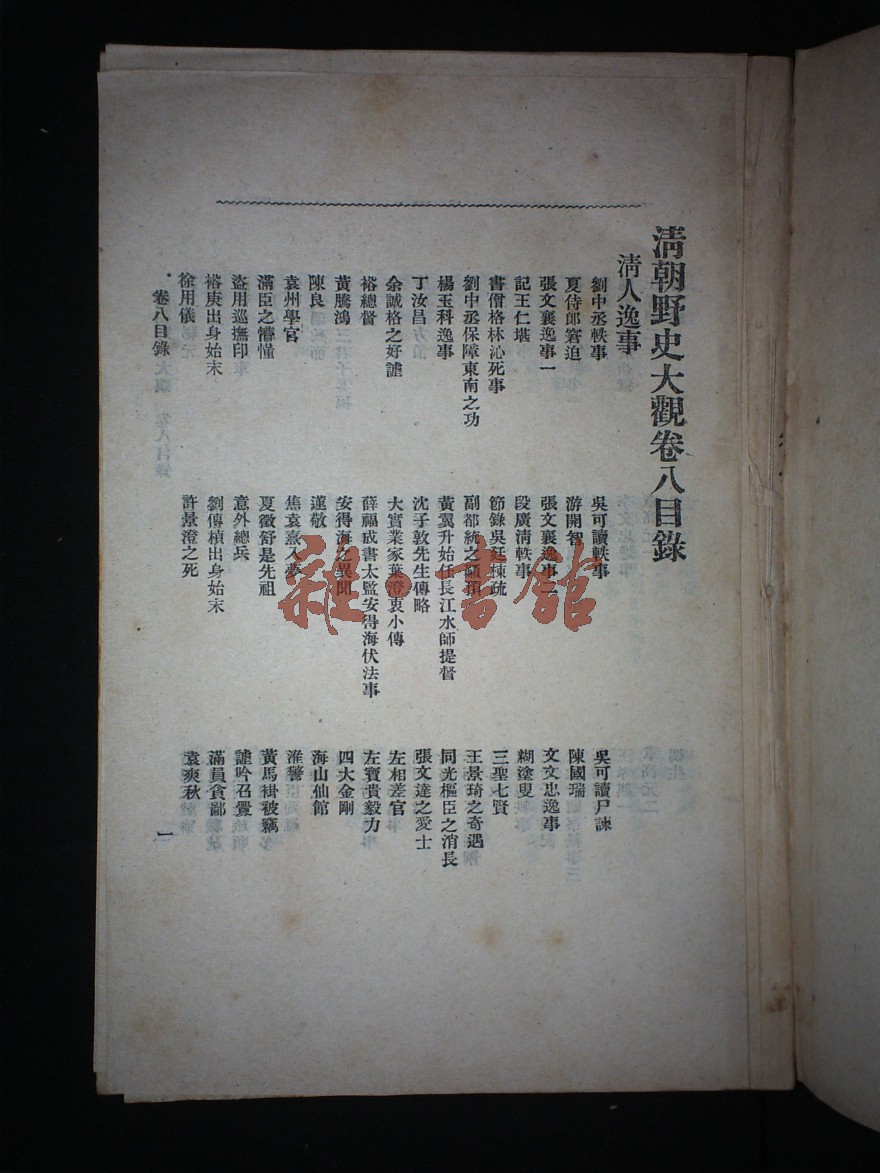 清朝野史大觀卷八目錄
清人逸事
劉中丞軼事 吳可讀軼事 吳可讀尸諫
夏侍郎窘迫 游開智 陳國瑞
張文襄逸事一 張文襄逸事二 文文忠逸事
記王仁堪 段廣清軼事 糊塗叟
書僧格林沁死事 節錄吳廷棟疏 三聖七賢
劉中丞保障東南之功 副都統之顢頇 王景琦之奇遇
楊玉科逸事 黃翼升始任長江水師提督 同光樞臣之消長
丁汝昌 沈子敦先生傳略 張文達之愛士
余誠格之好謔 大實業家葉澄衷小傳 左相差官
裕總督 薛福成書太監安得海伏法事 左寶貴毅力
黃騰鴻 安得海之異聞 四大金剛
陳良 敬 海山仙館
袁州學官 焦袁熹入夢 淮警
滿臣之懵懂 夏徵舒是先祖 黃馬褂被竊
盜用巡撫印 意外總兵 謔吟召釁
裕庚出身始末 劉傳楨出身始末 滿員貪鄙
徐用儀 許景澄之死 袁爽秋
卷八目錄 一
雜·書館